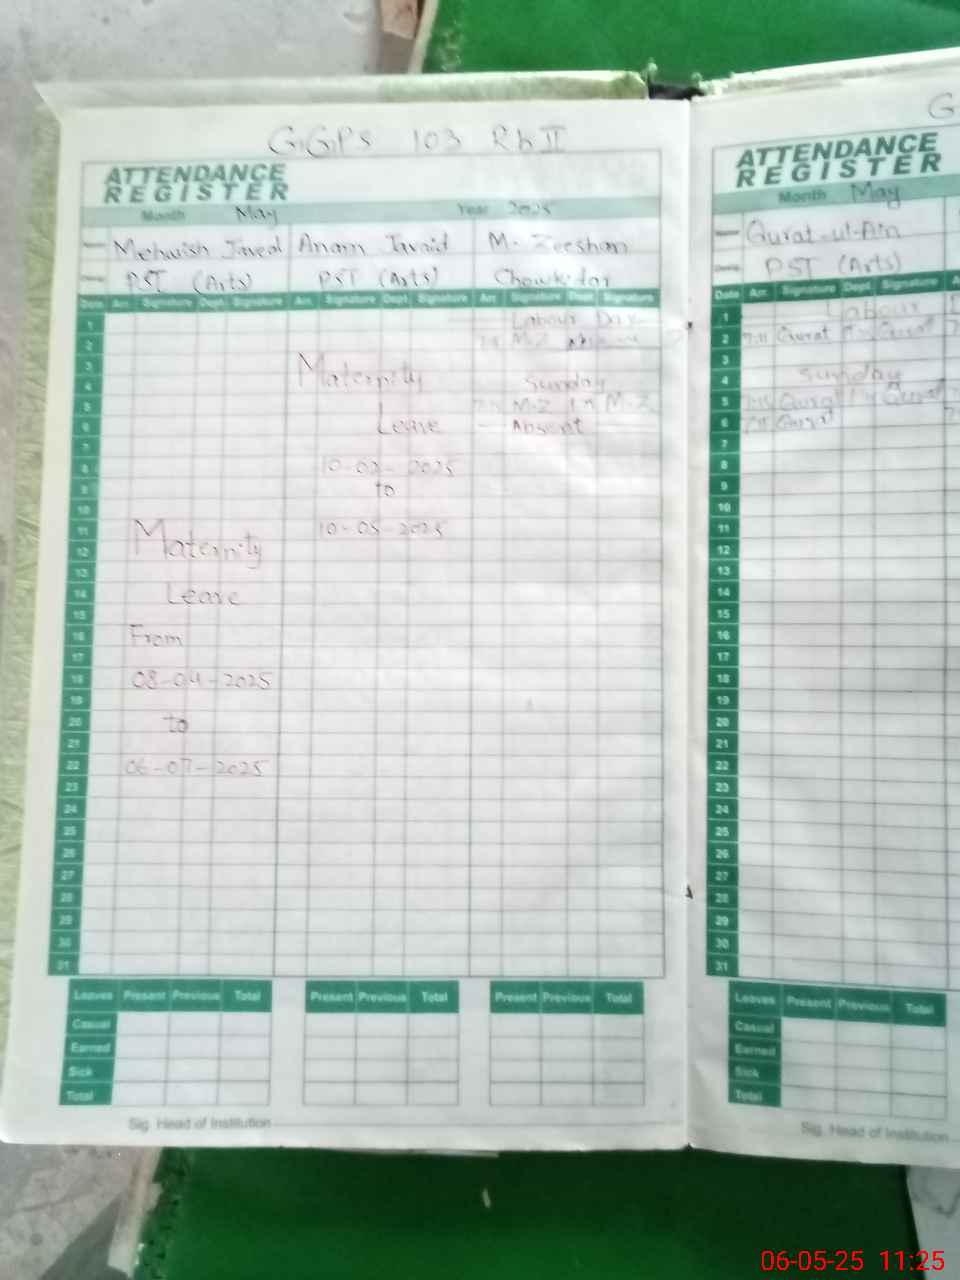 GGPS 103 Rb II
ATTENDANCE
REGISTER
Month May Year 2025
Name Mehwish Javed Anam Javaid M. Zeeshan
Desig PST (Arts) PST (Arts) Chowkidar
Date Arr. Signature Dept. Signature Arr. Signature Dept. Signature Arr. Signature Dept. Signature
1 Labour Day
2 M.Z
3 Maternity
4 Sunday
5 M.Z M.Z
6 Leave - Absent
7
8 10-02-2025
9 to
10
11 10-05-2025
12 Maternity
13
14 Leave
15
16 From
17
18 08-04-2025
19
20 to
21
22 06-07-2025
23
24
25
26
27
28
29
30
31
Leaves Present Previous Total Present Previous Total Present Previous Total
Casual
Earned
Sick
Total
Sig. Head of Institution
G
ATTENDANCE
REGISTER
Month May
Name Qurat-ul-Ain
Desig PST (Arts)
Date Arr. Signature Dept. Signature
1 Labour
2 Qurat Qurat
3
4 Sunday
5 Qurat Qurat
6 Qurat
7
8
9
10
11
12
13
14
15
16
17
18
19
20
21
22
23
24
25
26
27
28
29
30
31
Leaves Present Previous Total
Casual
Earned
Sick
Total
Sig. Head of Institution
06-05-25 11:25